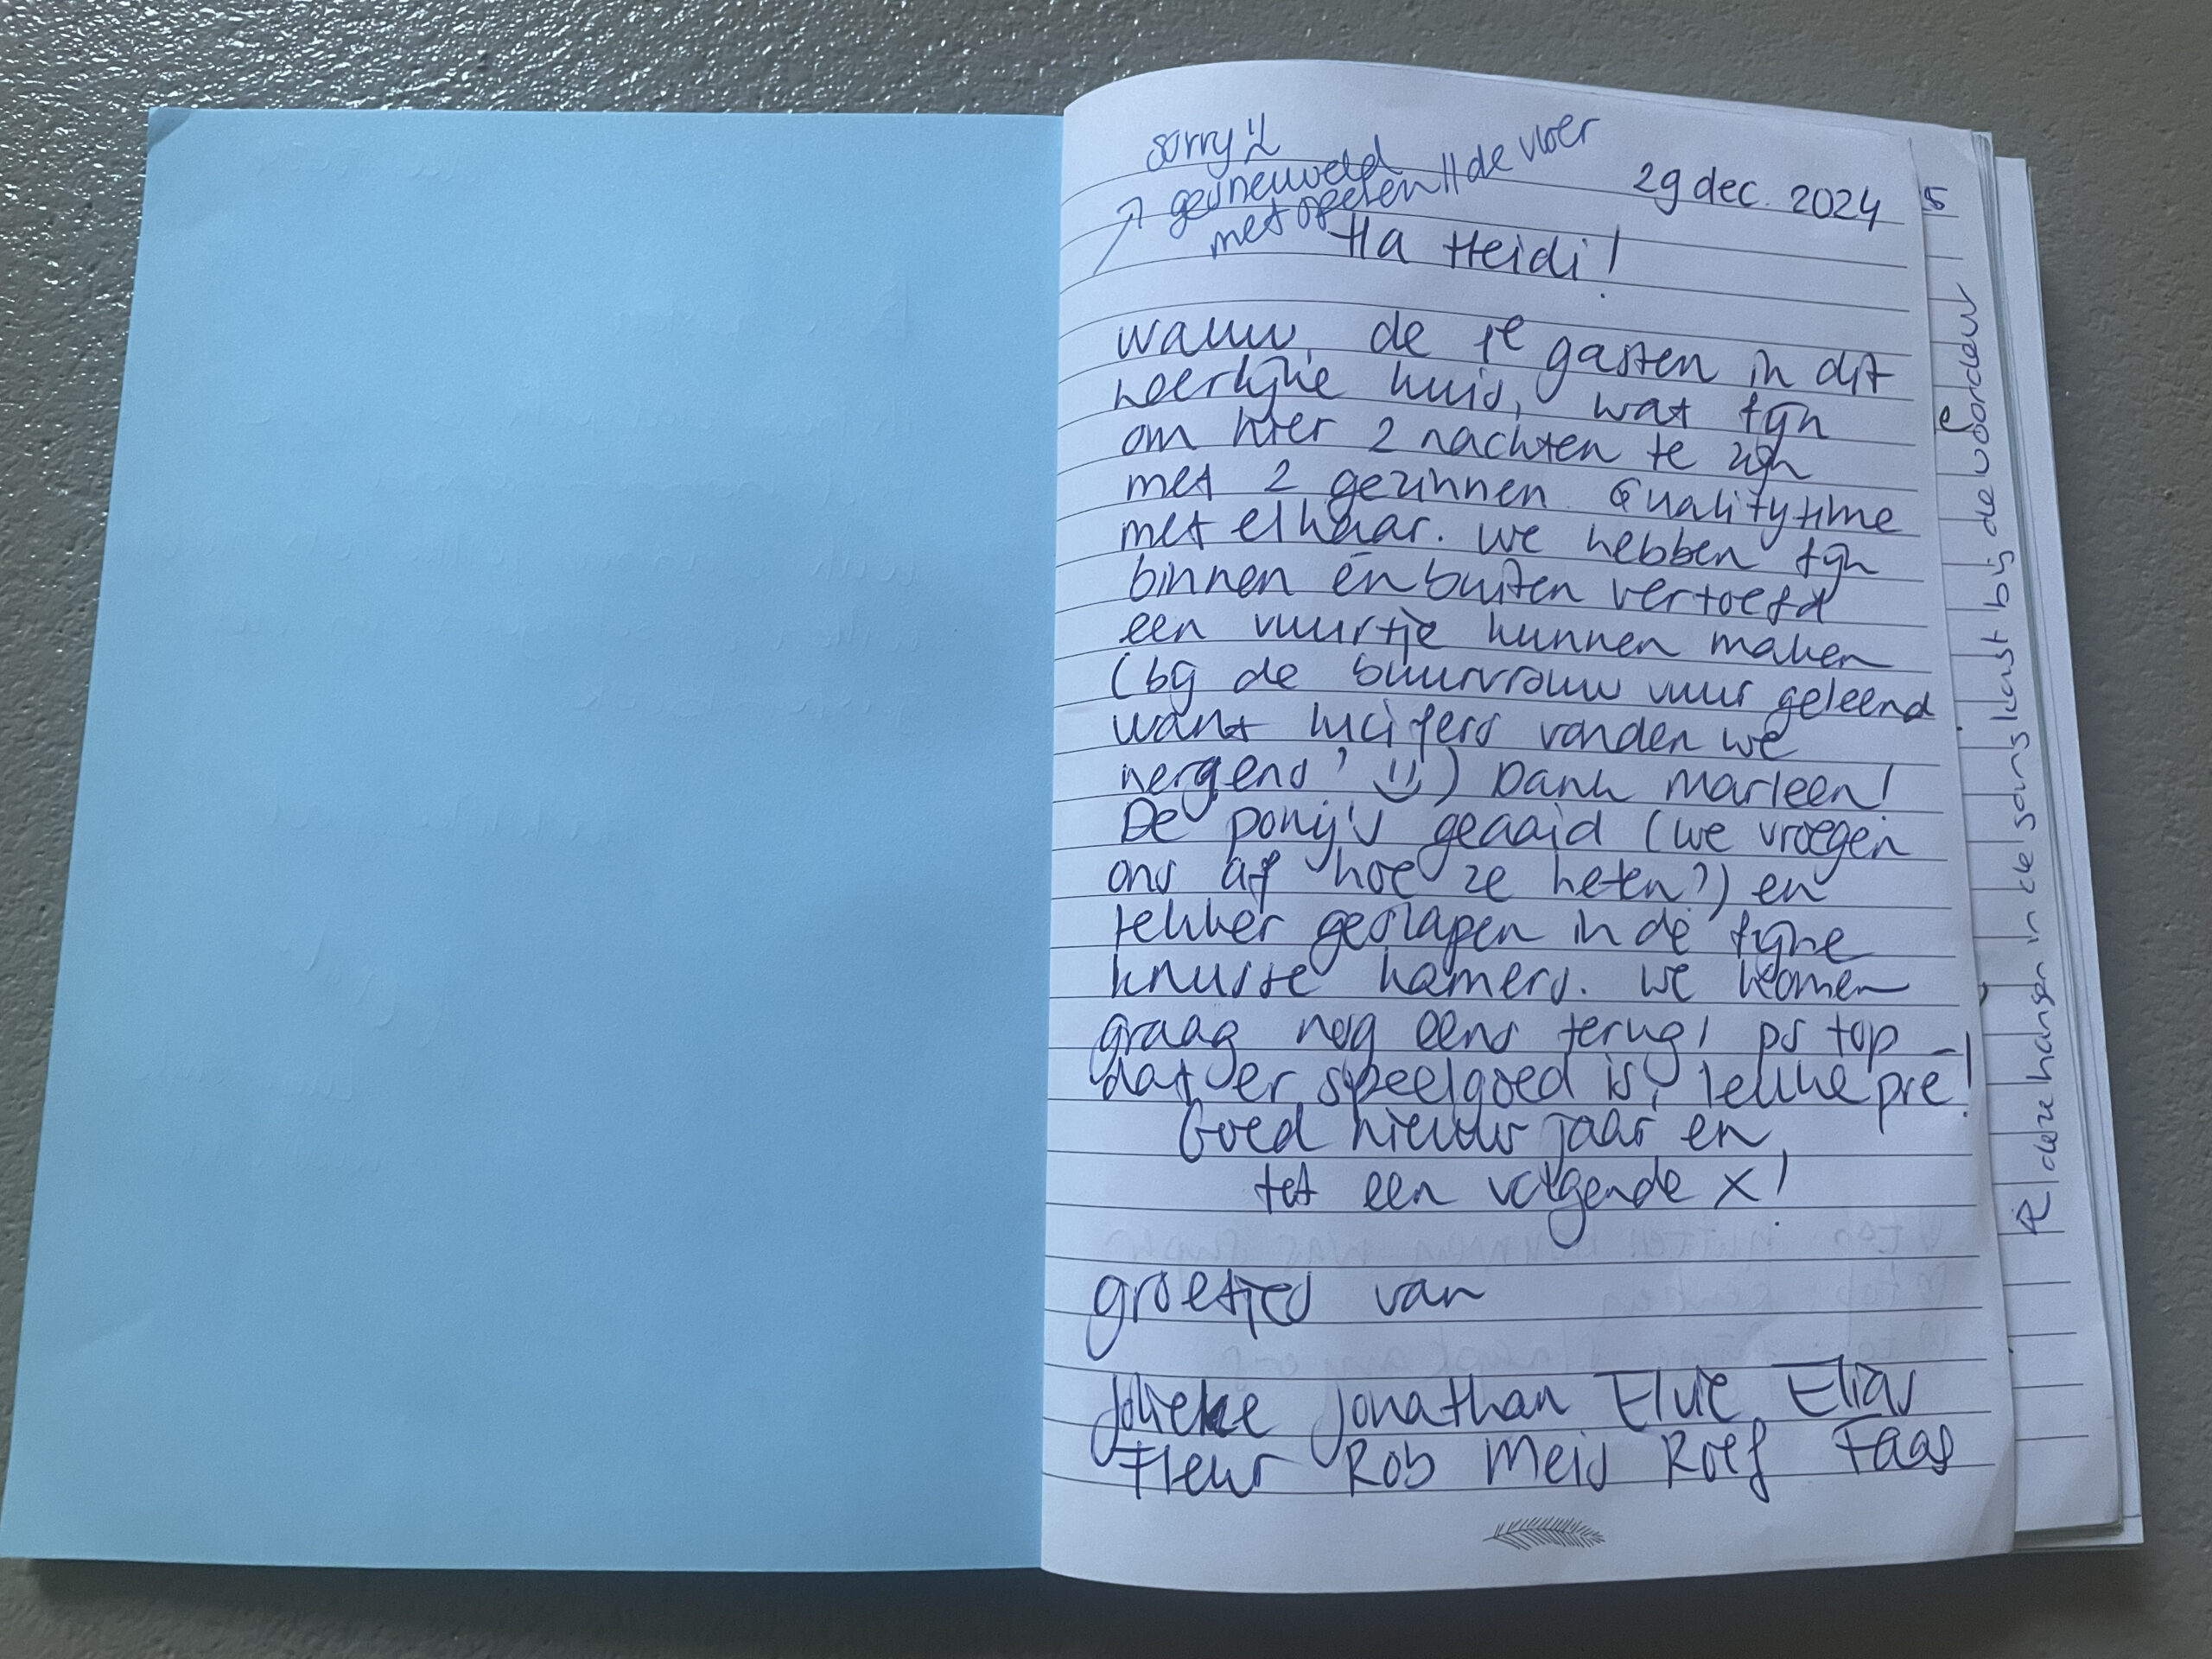 sorry!
gesneuveld
met openen // de vloer
29 dec. 2024
Ha Heidi!
wauw, de 1e gasten in dit
heerlijke huis, wat fijn
om hier 2 nachten te zijn
met 2 gezinnen. Qualitytime
met elkaar. We hebben fijn
binnen én buiten vertoefd
een vuurtje kunnen maken
(bij de buurvrouw vuur geleend
want lucifers vonden we
nergens! :)) Dank Marleen!
De pony's geaaid (we vroegen
ons af hoe ze heten?) en
lekker geslapen in de fijne
knusse kamers. We komen
graag nog eens terug! ps top
dat er speelgoed is, leuke pré!
Goed nieuw jaar en
tot een volgende x!
groetjes van
Jolieke Jonathan Elvie Elias
Fleur Rob Meis Roef Faas
5
e
deze hangen in de kast bij de voordeur